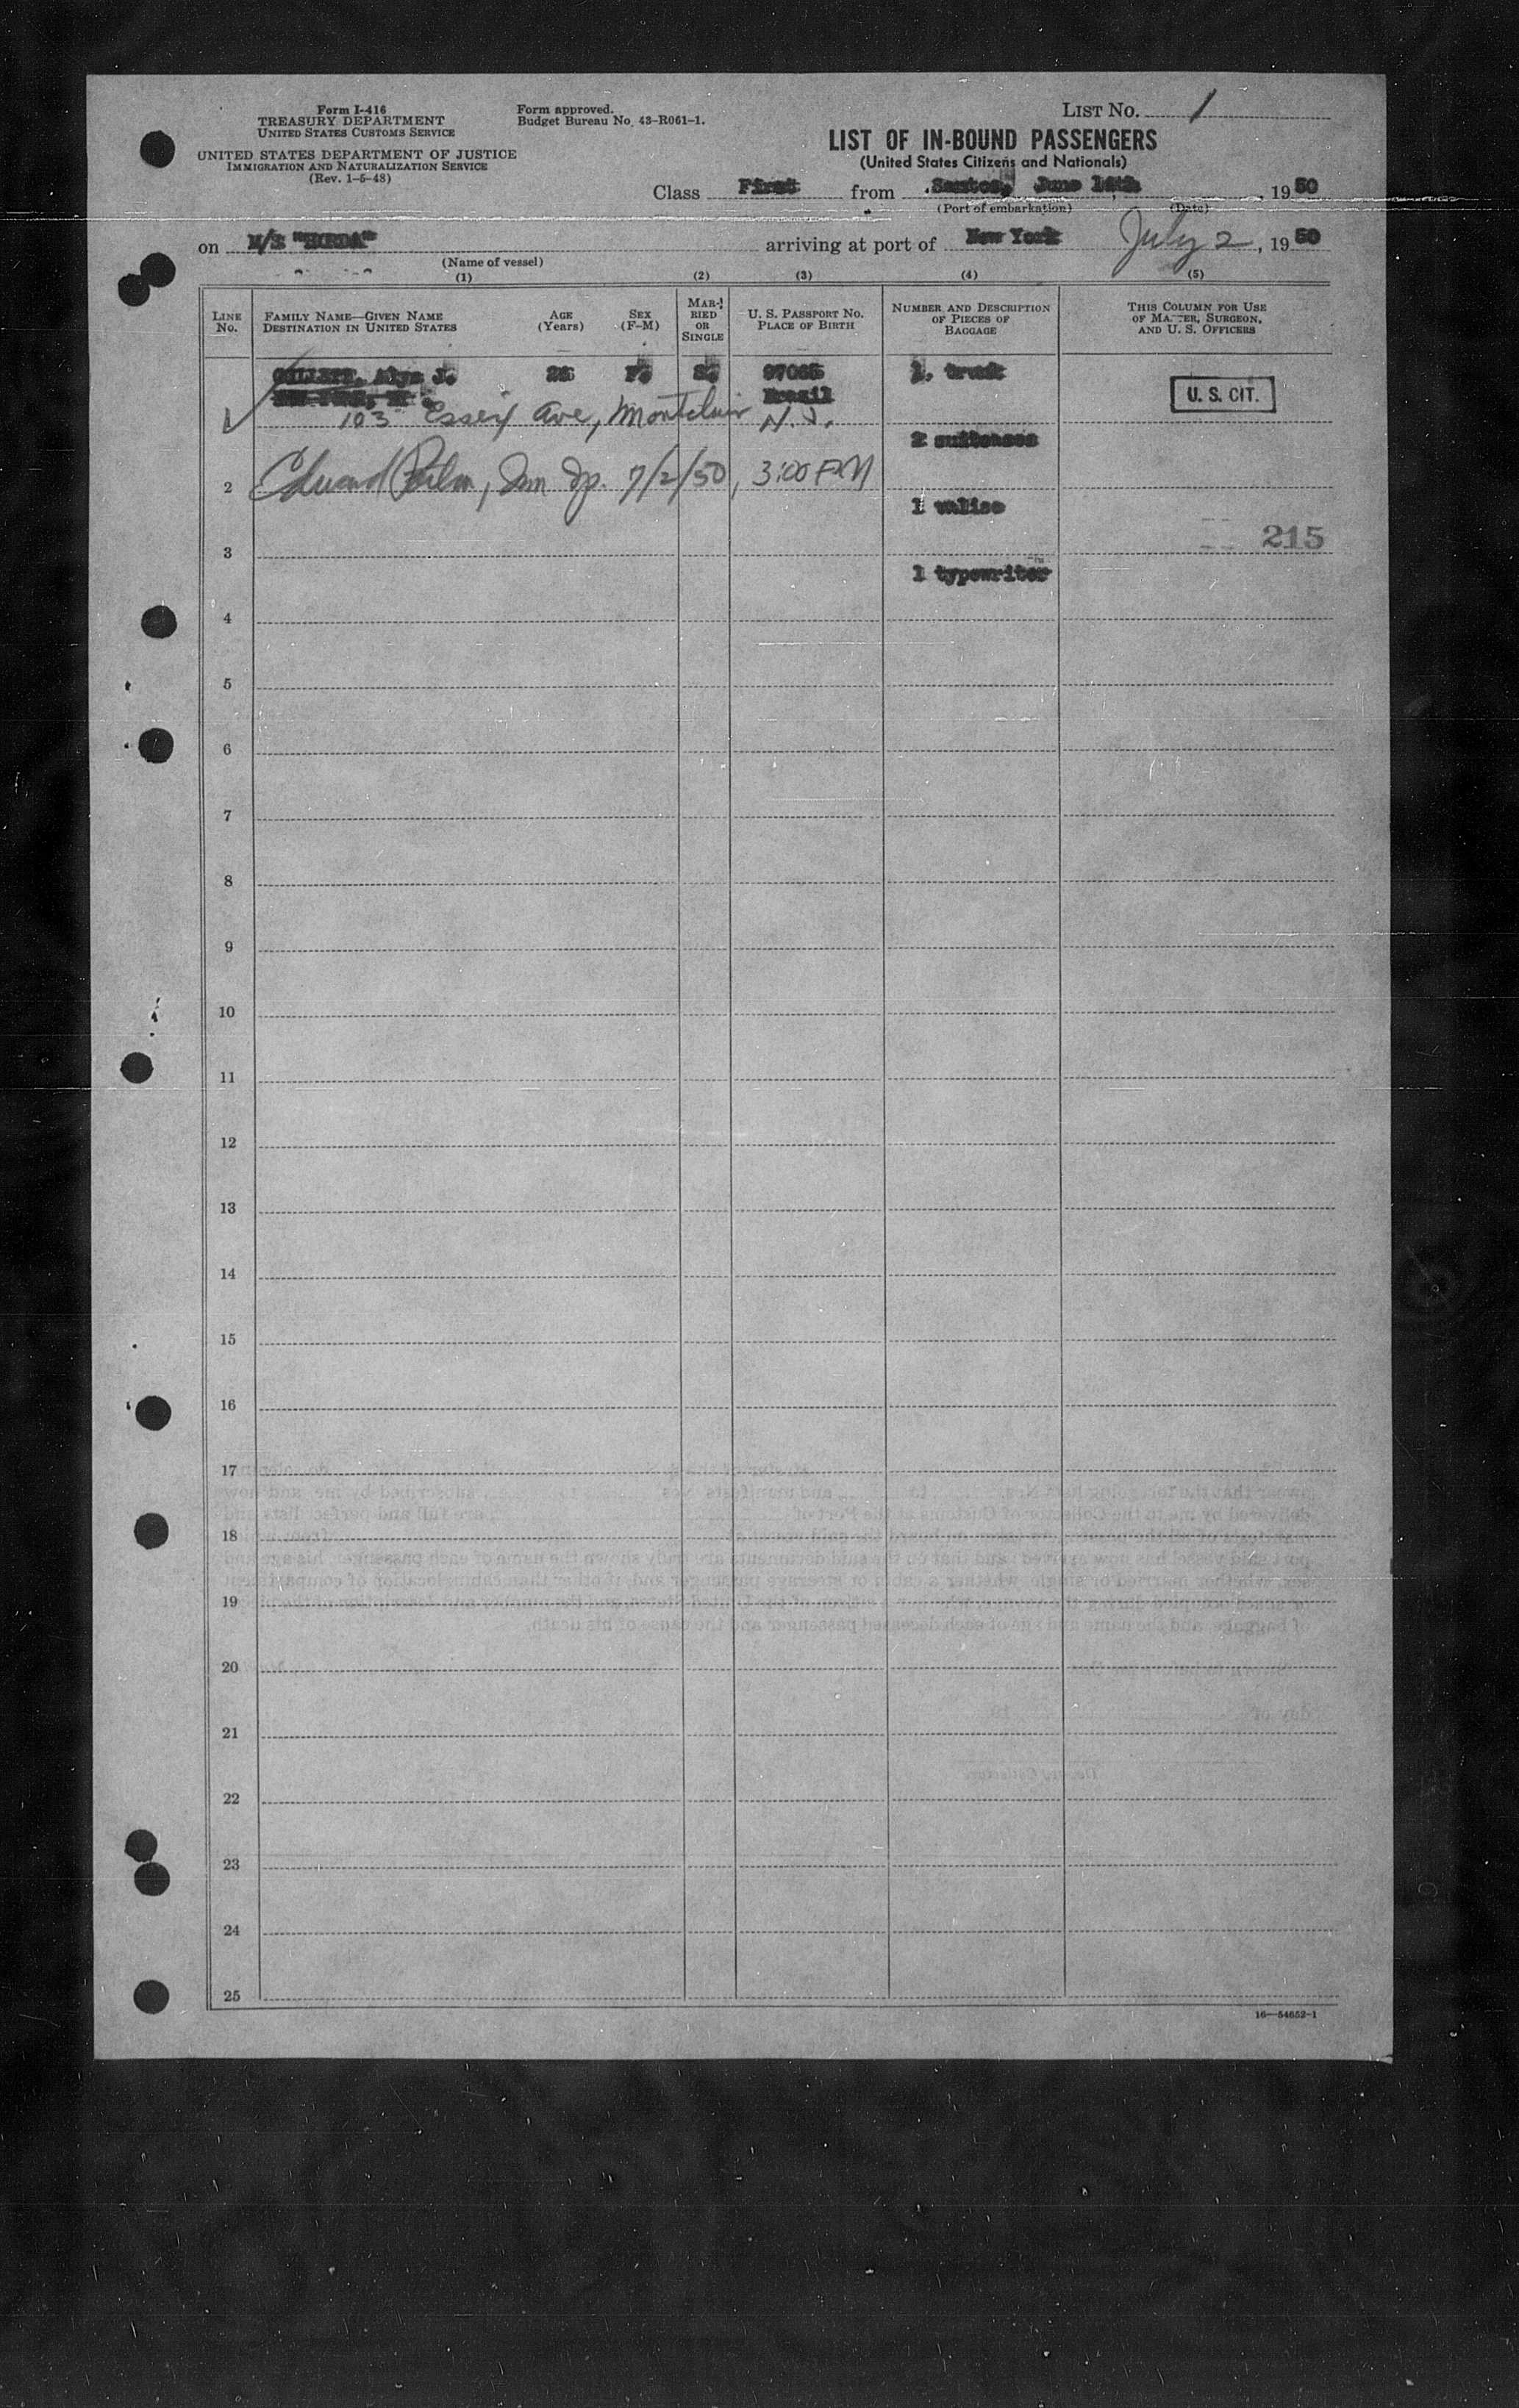 Form I-416
TREASURY DEPARTMENT
UNITED STATES CUSTOMS SERVICE
UNITED STATES DEPARTMENT OF JUSTICE
IMMIGRATION AND NATURALIZATION SERVICE
(Rev. 1-5-48)
Form approved.
Budget Bureau No. 43-R061-1.
LIST NO. 1
LIST OF IN-BOUND PASSENGERS
(United States Citizens and Nationals)
Class First from Santos, June 1950
(Port of embarkation) (Date)
on M/S arriving at port of New York July 2, 1950
(Name of vessel)
(1) (2) (3) (4) (5)
LINE No. FAMILY NAME—GIVEN NAME DESTINATION IN UNITED STATES AGE (Years) SEX (F-M) MARRIED OR SINGLE U. S. PASSPORT NO. PLACE OF BIRTH NUMBER AND DESCRIPTION OF PIECES OF BAGGAGE THIS COLUMN FOR USE OF MASTER, SURGEON, AND U. S. OFFICERS
J. F. S. 1. trunk
Brazil U. S. CIT.
1 103 Essex Ave, Montclair N.J.
2 suitcases
2 7/2/50, 3:00 PM
1 valise
215
3
1 typewriter
4
5
6
7
8
9
10
11
12
13
14
15
16
17
18
19
20
21
22
23
24
25
16—54652-1